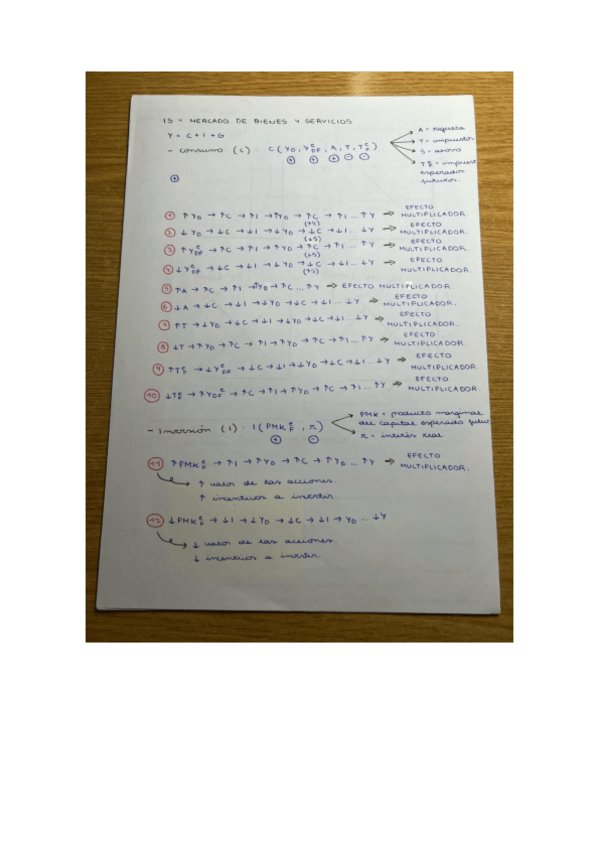 IS = MERCADO DE BIENES Y SERVICIOS
Y = C + I + G
- consumo (C) : C (YD, Y^e_DF, A, T, T^e_F)
(+) (+) (+) (-) (-)
A = riqueza
T = impuestos
S = ahorro
T^e_F = impuest
esperados
futuros.
(+)
① ↑YD → ↑C → ↑I → ↑YD → ↑C → ↑I ... ↑Y ⇒ EFECTO MULTIPLICADOR
(↑S)
② ↓YD → ↓C → ↓I → ↓YD → ↓C → ↓I ... ↓Y ⇒ EFECTO MULTIPLICADOR.
(↓S)
③ ↑Y^e_DF → ↑C → ↑I → ↑YD → ↑C → ↑I ... ↑Y ⇒ EFECTO MULTIPLICADOR.
(↓S)
④ ↓Y^e_DF → ↓C → ↓I → ↓YD → ↓C → ↓I ... ↓Y ⇒ EFECTO MULTIPLICADOR.
(↑S)
⑤ ↑A → ↑C → ↑I → ↑YD → ↑C ... ↑Y ⇒ EFECTO MULTIPLICADOR.
⑥ ↓A → ↓C → ↓I → ↓YD → ↓C → ↓I ... ↓Y ⇒ EFECTO MULTIPLICADOR.
⑦ ↑T → ↓YD → ↓C → ↓I → ↓YD → ↓C → ↓I ... ↓Y ⇒ EFECTO MULTIPLICADOR.
⑧ ↓T → ↑YD → ↑C → ↑I → ↑YD → ↑C → ↑I ... ↑Y ⇒ EFECTO MULTIPLICADOR.
⑨ ↑T^e_F → ↓Y^e_DF → ↓C → ↓I → ↓YD → ↓C → ↓I ... ↓Y ⇒ EFECTO MULTIPLICADOR.
⑩ ↓T^e_F → ↑Y^e_DF → ↑C → ↑I → ↑YD → ↑C → ↑I ... ↑Y ⇒ EFECTO MULTIPLICADOR.
- Inversión (I) : I (PMK^e_F, r)
(+) (-)
PMK = producto marginal
del capital esperado futur
r = interés real
⑪ ↑PMK^e_F → ↑I → ↑YD → ↑C → ↑YD ... ↑Y ⇒ EFECTO MULTIPLICADOR.
↑ valor de las acciones.
↑ incentivos a invertir.
⑫ ↓PMK^e_F → ↓I → ↓YD → ↓C → ↓I → YD ... ↓Y
↓ valor de las acciones.
↓ incentivos a invertir